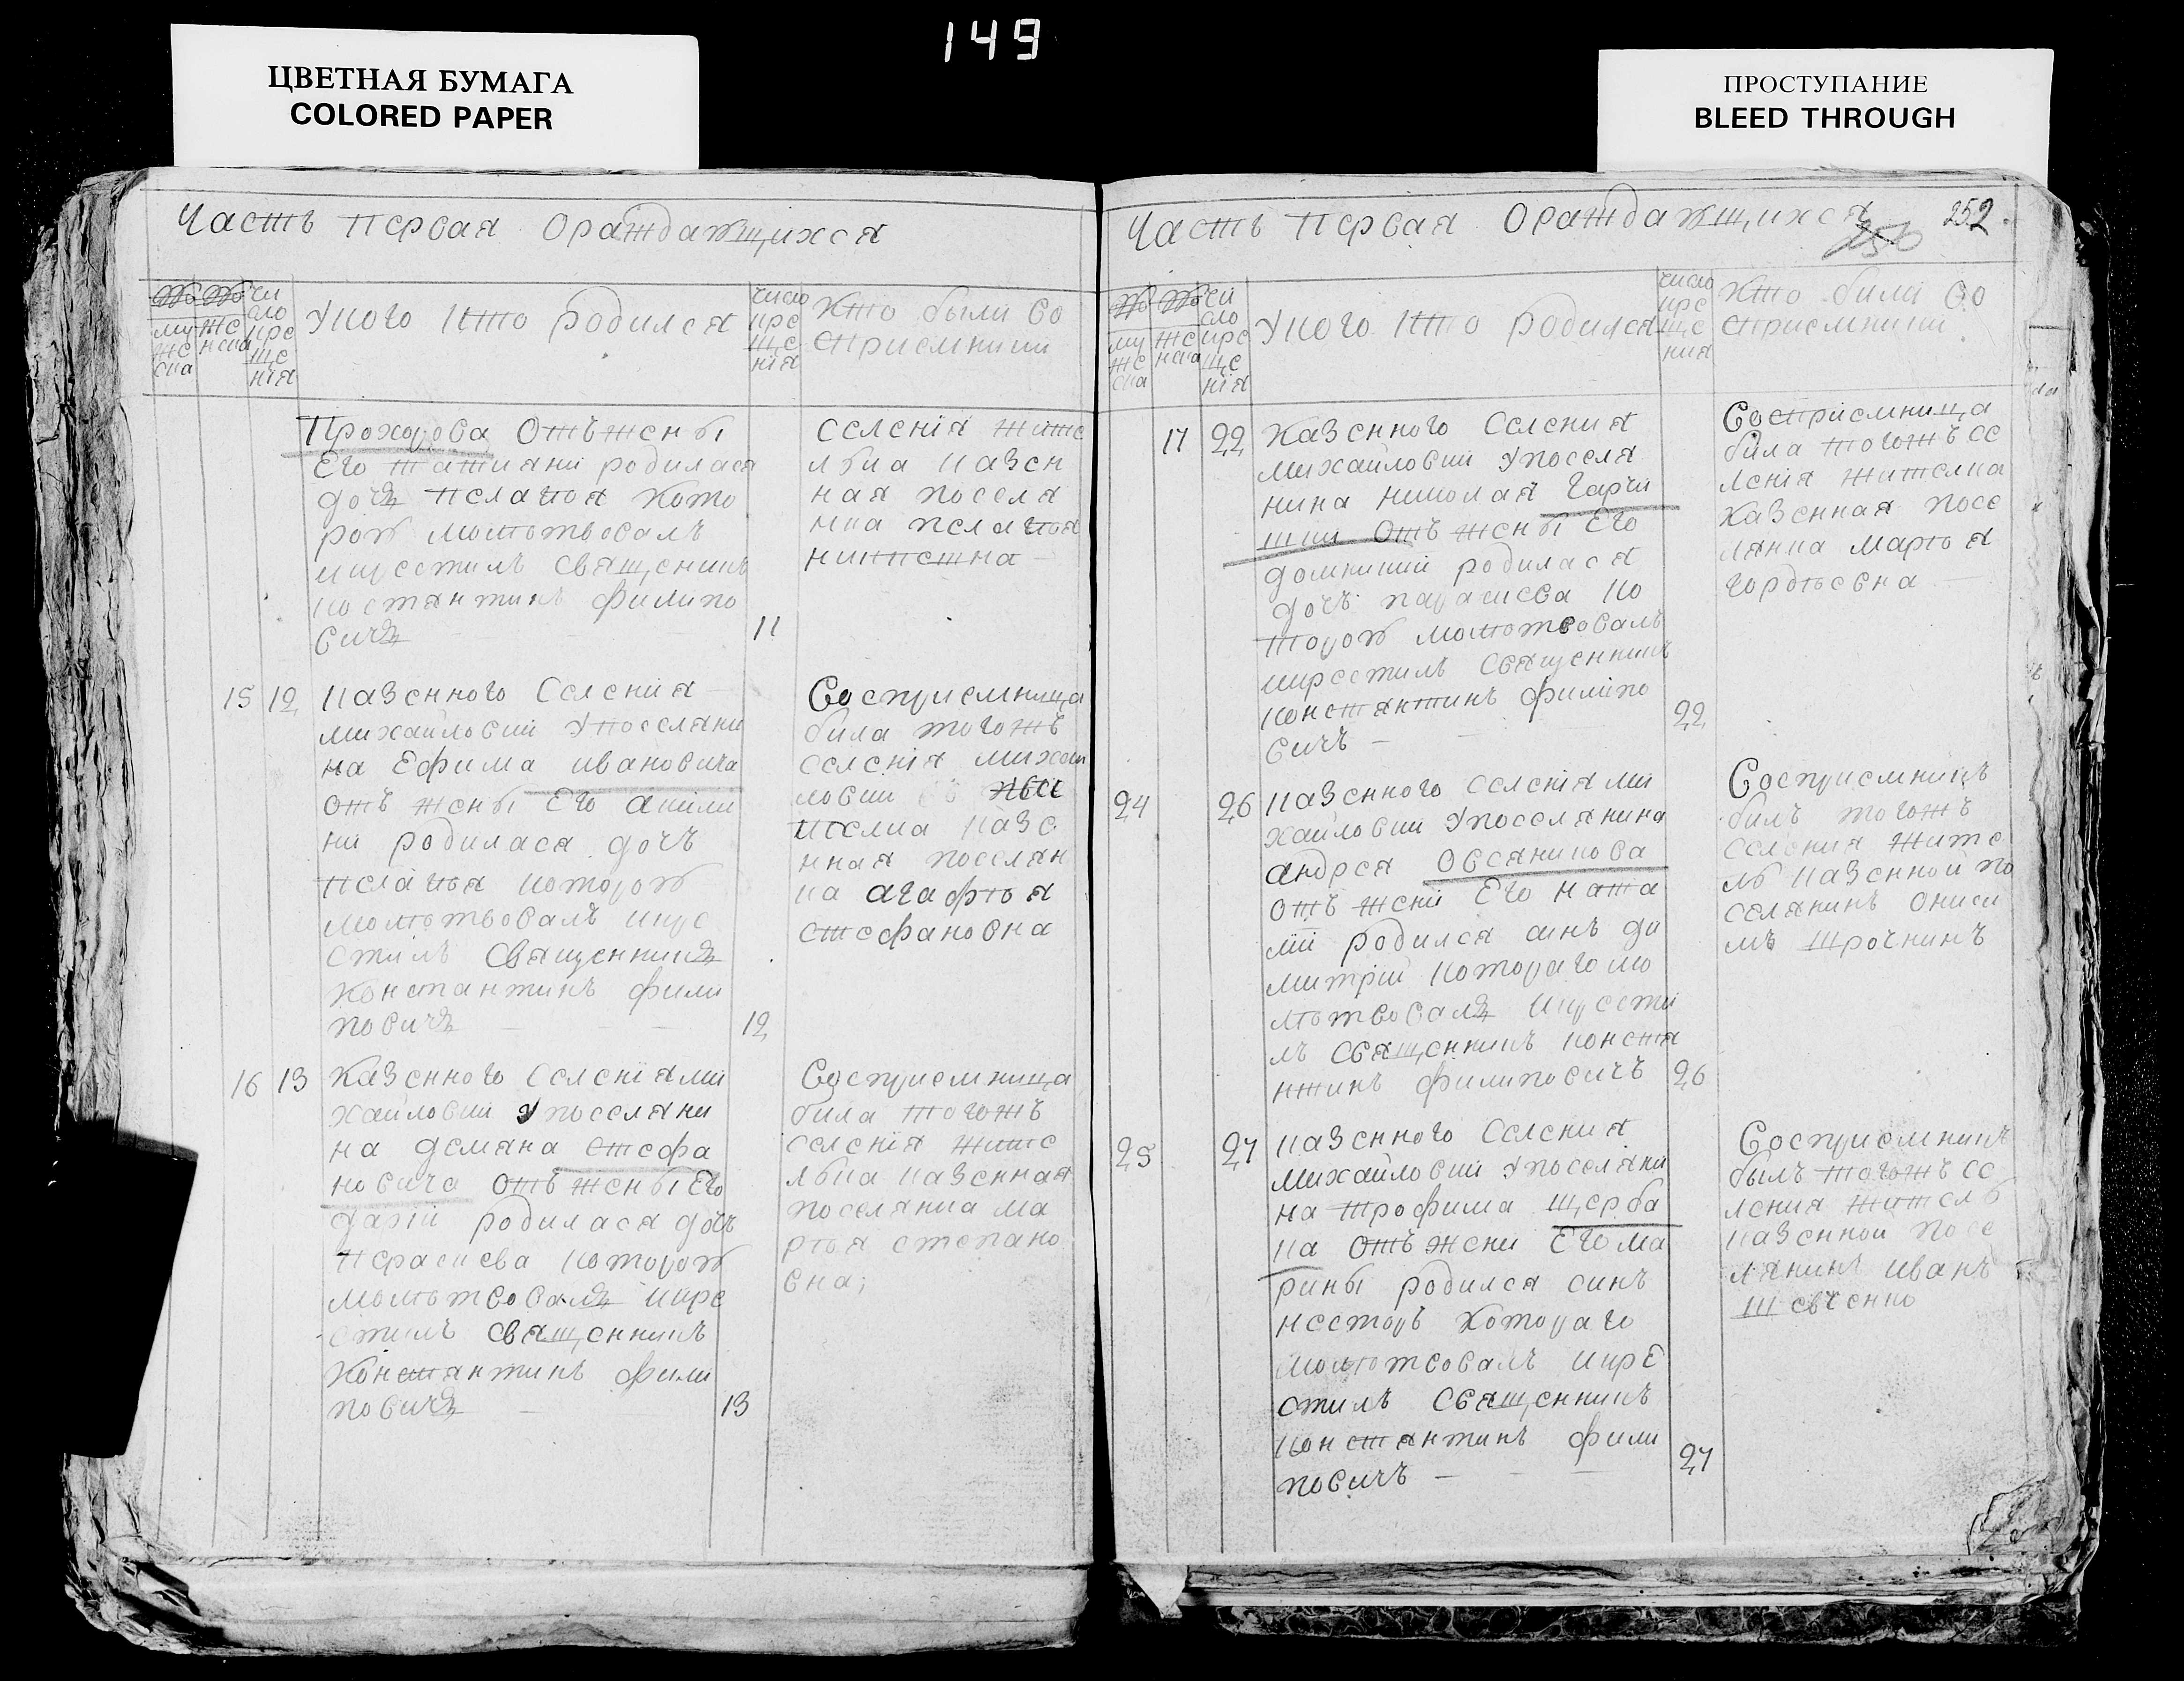 149
ЦВЕТНАЯ БУМАГА
COLORED PAPER
ПРОСТУПАНИЕ
BLEED THROUGH
Часть первая ораждающихся
№ му же ска
№ же нска
чи сло кре ще нїя
Укого кто родился
число кре ще нїя
Кто были во
сприемники
Прохорова отъ жены
Его татияни родилася
дочь пелагия кото
рою молитвовалъ
икрестилъ священникъ
костянтинъ филипо
вичъ
11
селенїя жите
лька казен
ная поселя
нка пелагия
никитина
15 12 казенного селения
михайловки упоселяни
на Ефима ивановича
отъ жены Его акили
ни родилася дочь
пелагия которою
молитвовалъ икре
стилъ священникъ
константинъ фили
повичъ
12
Восприемница
била тогожъ
селенїя михай
ловки
ителка казе
нная поселян
ка агафия
стефановна
16 13 Казенного селенїя ми
хайловки упоселяни
на демяна стефа
новича отъ жены Его
дарїи родилася дочь
перасиева которою
молитвовалъ икре
стилъ священникъ
константинъ фили
повичъ
13
Восприемница
била тогожъ
селенїя жите
лька казенная
поселянка ма
рфия степано
вна;
Часть первая ораждающихся
250 252.
№ му же ска
№ же нска
чи сло кре ще нїя
Укого кто родился
число кре ще ния
Кто били во
сприемники
17 22 Казенного селения
михайловки упоселя
нина николая гарчи
отъ жены Его
домникии родилася
дочъ парасиева ко
торою молитвовалъ
икрестилъ священникъ
константинъ филипо
вичъ
22
Восприемница
била тогожъ се
ленїя жителка
Казенная посе
лянка марфия
гордиевна
24 26 казенного селенїя ми
хайловки упоселянина
андрея овсяникова
отъ жени Его ната
лїи родился синъ ди
митрїи которагомо
литвовалъ икрести
лъ священникъ конста
нтинъ филиповичъ
26
Восприемникъ
билъ тогожъ
селения жите
ль казенной по
селянинъ ониси
мъ трочнинъ
25 27 казенного селения
михайловки упоселяни
на трофима щерба
ка отъ жени Его ма
рины родился синъ
несторъ котораго
молитвовалъ икрЕ
стилъ священникъ
константинъ фили
повичъ
27
Восприемникъ
былъ тогожъ се
ления житель
казенной посе
лянинъ иванъ
шевченко